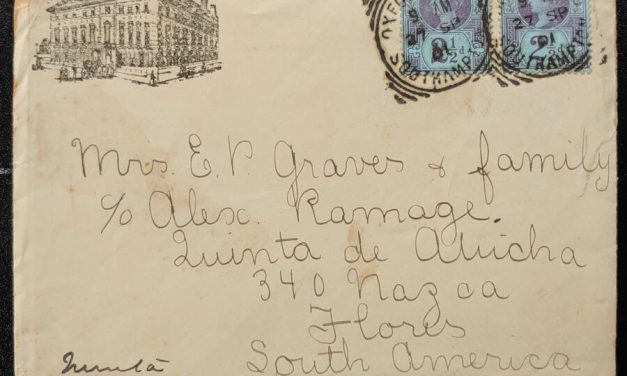 SOUTHAMPTON
27 SP
2½d
SOUTHAMPTON
27 SP
2½
Mrs. E. P. Graves & family
c/o Alex. Ramage.
Quinta de Alicha
340 Nazca
Flores
South America